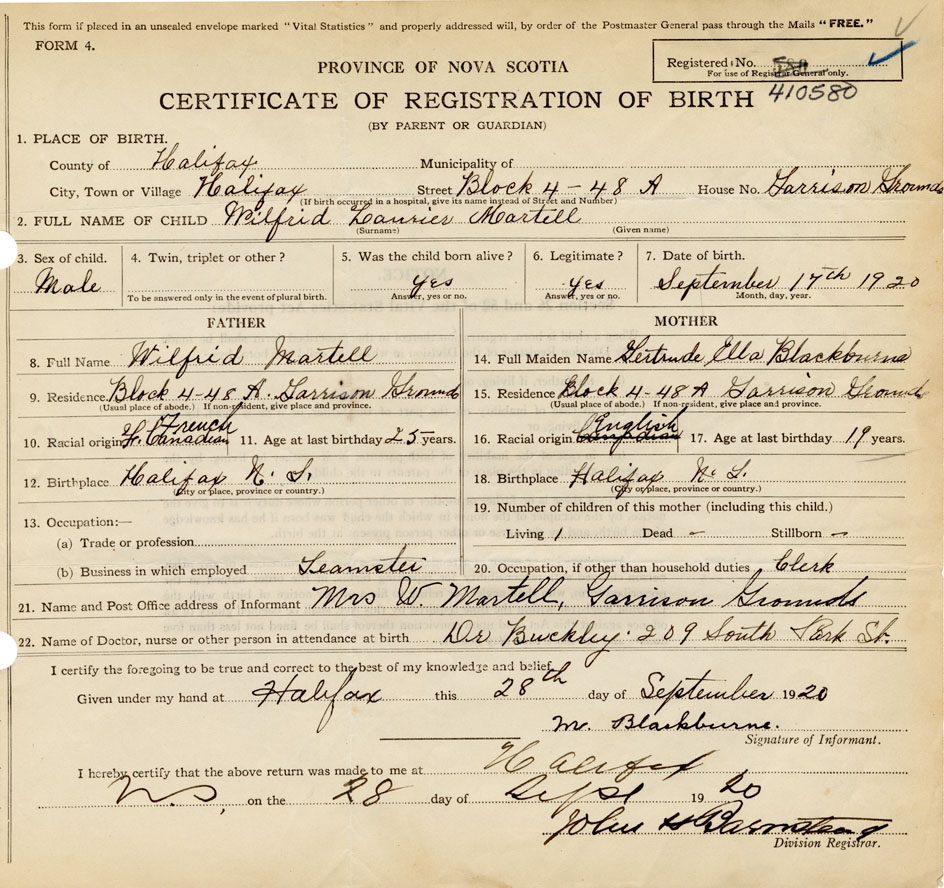 This form if placed in an unsealed envelope marked "Vital Statistics" and properly addressed will, by order of the Postmaster General pass through the Mails "FREE."
FORM 4.
Registered No. 580
For use of Registrar General only.
410580
PROVINCE OF NOVA SCOTIA
CERTIFICATE OF REGISTRATION OF BIRTH
(BY PARENT OR GUARDIAN)
1. PLACE OF BIRTH.
County of Halifax Municipality of
City, Town or Village Halifax Street Block 4-48 A House No. Garrison Grounds
(If birth occurred in a hospital, give its name instead of Street and Number)
2. FULL NAME OF CHILD Wilfrid Laurier Martell
(Surname) (Given name)
3. Sex of child. 4. Twin, triplet or other? 5. Was the child born alive? 6. Legitimate? 7. Date of birth.
Male yes yes September 17th 1920
To be answered only in the event of plural birth. Answer, yes or no. Answer, yes or no. Month, day, year.
FATHER MOTHER
8. Full Name Wilfrid Martell 14. Full Maiden Name Gertrude Ella Blackburne
9. Residence Block 4-48 A. Garrison Grounds 15. Residence Block 4-48 A Garrison Grounds
(Usual place of abode.) If non-resident, give place and province. (Usual place of abode.) If non-resident, give place and province.
French English
10. Racial origin F. Canadian 11. Age at last birthday 25 years. 16. Racial origin Canadian 17. Age at last birthday 19 years.
12. Birthplace Halifax N. S. 18. Birthplace Halifax N. S.
(City or place, province or country.) (City or place, province or country.)
13. Occupation:— 19. Number of children of this mother (including this child.)
(a) Trade or profession Living 1 Dead – Stillborn –
(b) Business in which employed Teamster 20. Occupation, if other than household duties Clerk
21. Name and Post Office address of Informant Mrs W. Martell, Garrison Grounds
22. Name of Doctor, nurse or other person in attendance at birth Dr Buckley. 209 South Park St.
I certify the foregoing to be true and correct to the best of my knowledge and belief.
Given under my hand at Halifax this 28th day of September 1920
M. Blackburne.
Signature of Informant.
I hereby certify that the above return was made to me at Halifax
N.S, on the 28 day of Sept 1920
John H Barnstead
Division Registrar.